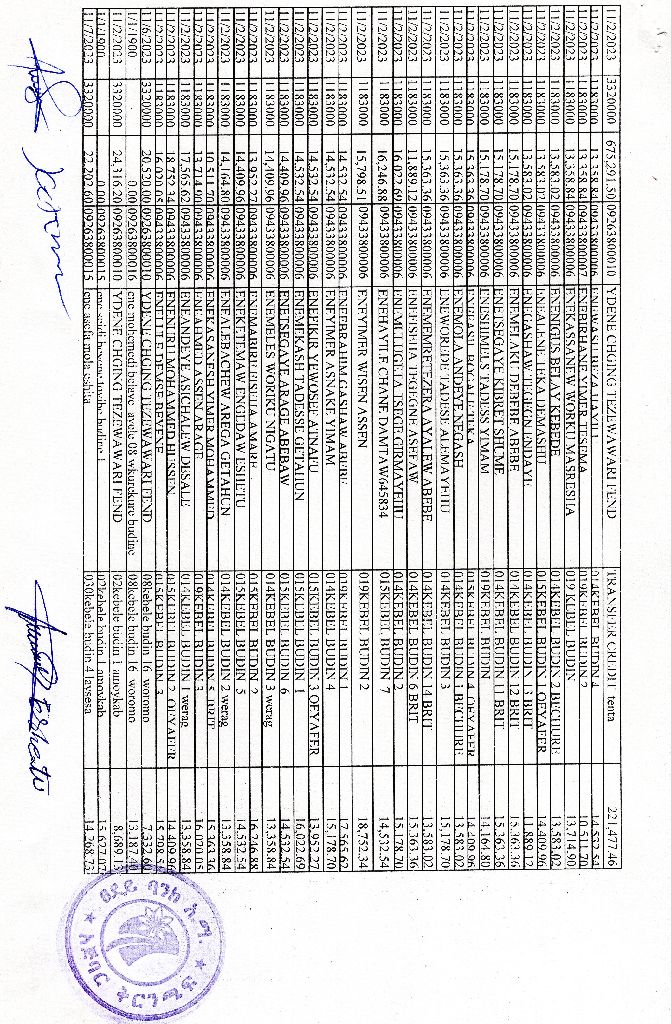 11/2/2023 3320000 675,291.50 09263800010 YDENE CHGING TEZEWAWARI FEND TRANSFER CREDIT tenta 221,477.46
11/2/2023 1183000 13,358.84 09433800006 014KEBEL BUDIN 4 14,532.54
11/2/2023 1183000 13,358.84 09433800007 ENEBIRHANE YIMER TESEMA 019KEBEL BUDIN 2 10,511.70
11/2/2023 1183000 13,358.84 09433800006 ENEKASSANEW WORKU MASRESHA 019KEBEL BUDIN 13,714.90
11/2/2023 1183000 13,583.02 09433800006 ENENIGUS BELAY KEBEDE 014KEBEL BUDIN 2 BECHURE 13,583.02
11/2/2023 1183000 13,583.02 09433800006 ENEALENE TEKA DEMASHU 015KEBEL BUDIN 1 QEYAFER 14,409.96
11/2/2023 1183000 13,583.02 09433800006 ENEGASHAW TEGEGN ENDAYE 014KEBEL BUDIN 13 BRIT 11,889.12
11/2/2023 1183000 15,178.70 09433800006 ENEMELAKU DEBEBE ABEBE 014KEBEL BUDIN 12 BRIT 15,363.36
11/2/2023 1183000 15,178.70 09433800006 ENETSEGAYE KIBRET SHUME 014KEBEL BUDIN 11 BRIT 15,363.36
11/2/2023 1183000 15,178.70 09433800006 ENESHIMELS TADESS YIMAM 019KEBEL BUDIN 14,164.80
11/2/2023 1183000 15,363.36 09433800006 ENEFASIL BOGALE TUKA 015KEBEL BUDIN 4 QEYAFER 14,409.96
11/2/2023 1183000 15,363.36 09433800006 ENEMOLA ANDEYE NEGASH 014KEBEL BUDIN 1 BECHURE 13,583.02
11/2/2023 1183000 15,363.36 09433800006 ENEWOREDE TADESE ALEMAYEHU 014KEBEL BUDIN 3 15,178.70
11/2/2023 1183000 15,363.36 09433800006 ENEMEMRETEZERA AYALEW ABEBE 014KEBEL BUDIN 14 BRIT 13,583.02
11/2/2023 1183000 11,889.12 09433800006 ENEESHETA TEGEGNE ASEFAW 014KEBEL BUDIN 6 BRIT 15,363.36
11/2/2023 1183000 16,022.69 09433800006 ENEMULUGETA TSEGE GIRMAYEHU 014KEBEL BUDIN 2 15,178.70
11/2/2023 1183000 16,246.88 09433800006 ENEHAYILE CHANE DAMTAW645834 015KEBEL BUDIN 7 14,532.54
11/2/2023 1183000 15,798.51 09433800006 ENEYIMER WISEN ASSEN 019KEBEL BUDIN 2 18,752.34
11/2/2023 1183000 14,532.54 09433800006 ENEEBRAHIM GASHAW ABEBE 019KEBEL BUDIN 1 17,565.62
11/2/2023 1183000 14,532.54 09433800006 ENEYIMER ASNAKE YIMAM 014KEBEL BUDIN 4 15,178.70
11/2/2023 1183000 14,532.54 09433800006 ENEFIKIR YEWOSEF ATINAFU 015KEBEL BUDIN 3 QEYAFER 13,952.27
11/2/2023 1183000 14,532.54 09433800006 ENEMEKASH TADESSE GETAHUN 015KEBEL BUDIN 1 16,022.69
11/2/2023 1183000 14,409.96 09433800006 ENETSEGAYE ARAGE ABEBAW 015KEBEL BUDIN 6 14,532.54
11/2/2023 1183000 14,409.96 09433800006 ENEMELES WORIKU NIGATU 014KEBEL BUDIN 3 werag 13,358.84
11/2/2023 1183000 13,952.27 09433800006 ENEMABIRU ESHETA AMARE 015KEBEL BUDIN 2 16,246.88
11/2/2023 1183000 14,409.96 09433800006 ENEKEDEMAW ENGIDAW ESHETU 015KEBEL BUDIN 5 14,532.54
11/2/2023 1183000 14,164.80 09433800006 ENEALEBACHEW AREGA GETAHUN 014KEBEL BUDIN 2 werag 13,358.84
11/2/2023 1183000 10,511.70 09433800006 ENEKASANESH YIMER MOHAMMED 014KEBEL BUDIN 5 BRIT 15,363.36
11/2/2023 1183000 13,714.90 09433800006 ENEAHMED ASSEN ARAGE 019KEBEL BUDIN 3 16,020.05
11/2/2023 1183000 17,565.62 09433800006 ENEANDEYE ASICHALEW DESALE 014KEBEL BUDIN 1 werag 13,358.84
11/2/2023 1183000 18,752.34 09433800006 ENENURU MOHAMMED HUSSEN 015KEBEL BUDIN 2 QEYAFER 14,409.96
11/2/2023 1183000 16,020.05 09433800006 DEMSE BEYENE 015KEBEL BUDIN 3 15,798.5
11/6/2023 3320000 20,520.00 09263800010 YDENE CHGING TEZEWAWARI FEND 08kebele budin 16 woromo 7,332.60
1/1/1900 0.00 09263800016 ene mohemedi beleye ayele 08 wkurekure budine 08kebele budin 16 woromo 13,187.40
11/2/2023 3320000 24,316.20 09263800010 YDENE CHGING TEZEWAWARI FEND 02kebele budin 1 amoykab 8,689.13
1/1/1900 0.00 09263800015 ene saidi beyene budine 1 02kebele budin 1 amoykab 15,627.07
11/7/2023 3320000 22,202.60 09263800015 ene asefa mola eshita 030kebele budin 4 laysesa 14,268.73